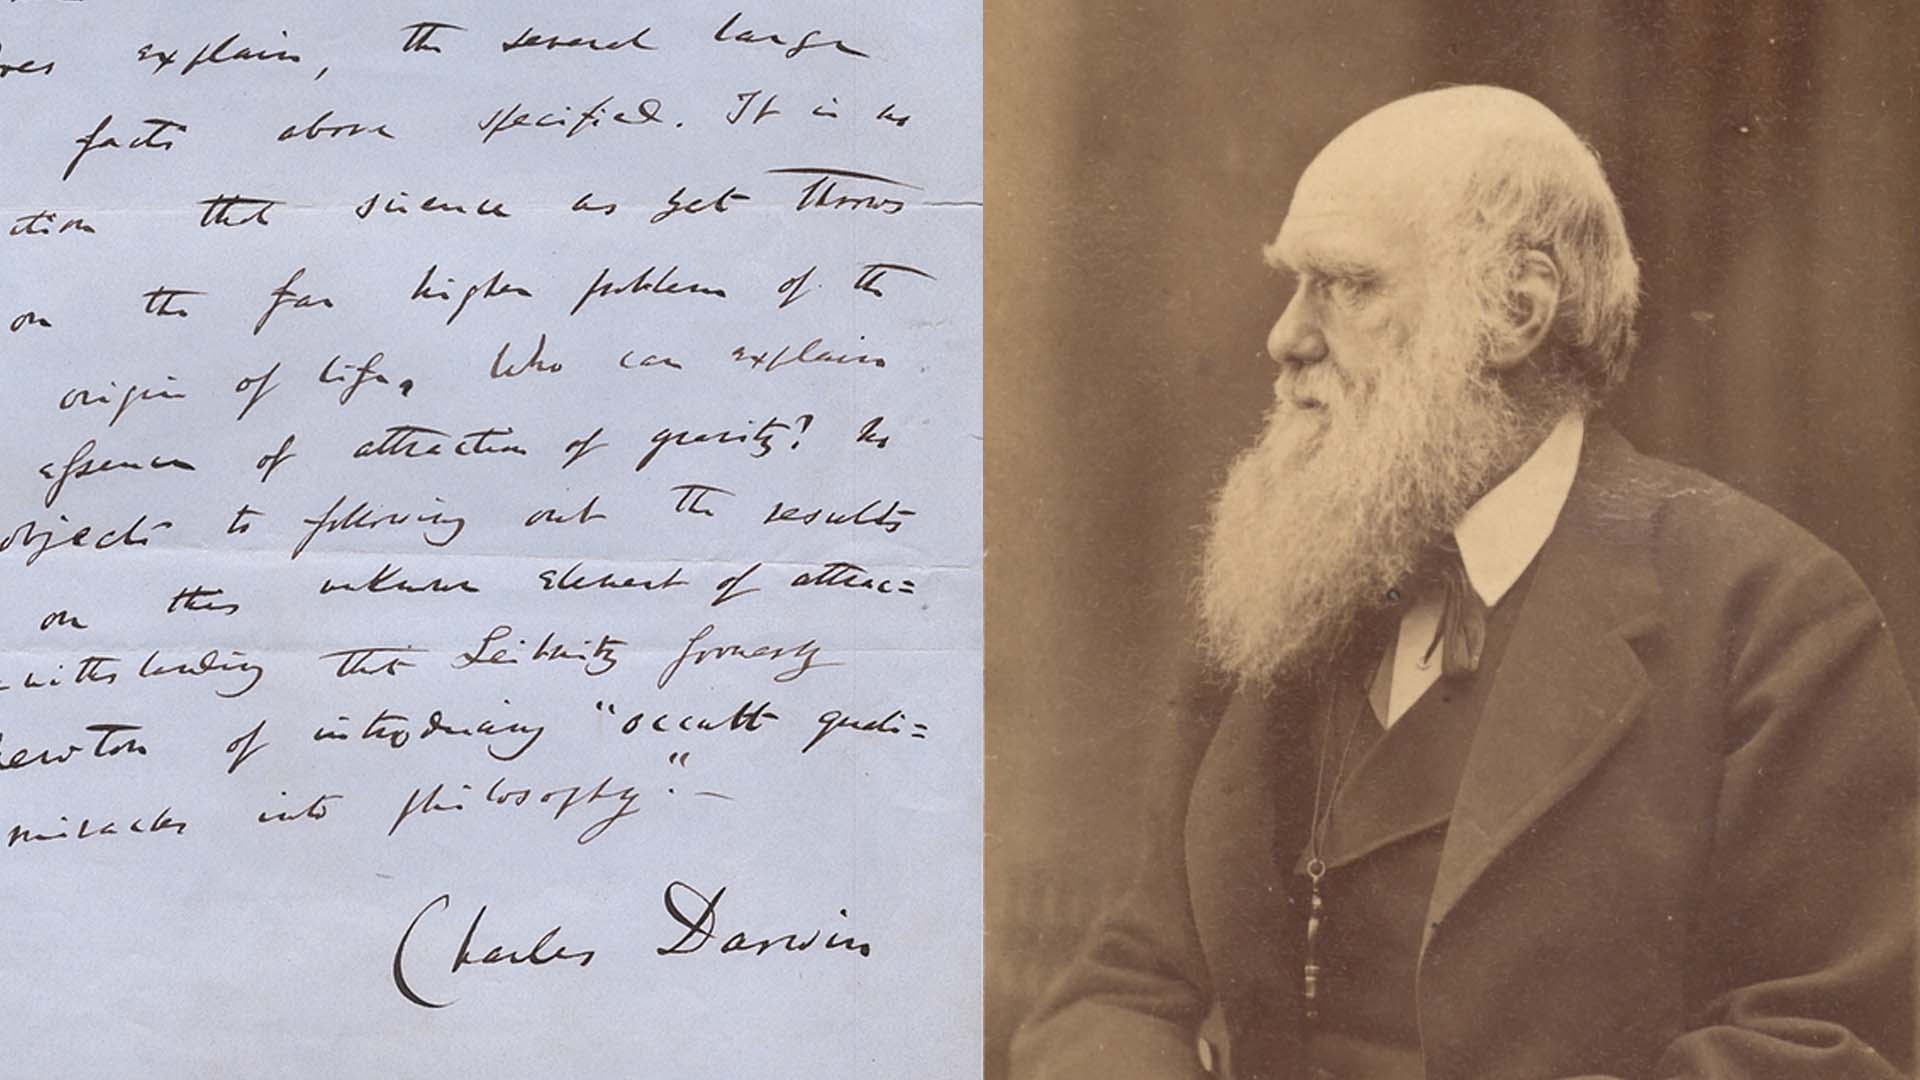 explain, the several large
facts above specified. It is no
that science as yet throws
on the far higher problem of the
origin of life. Who can explain
essence of attraction of gravity? No
objects to following out the results
on this unknown element of attrac=
withstanding that Leibnitz formerly
Newton of introducing "occult quali=
miracles into philosophy."—
Charles Darwin